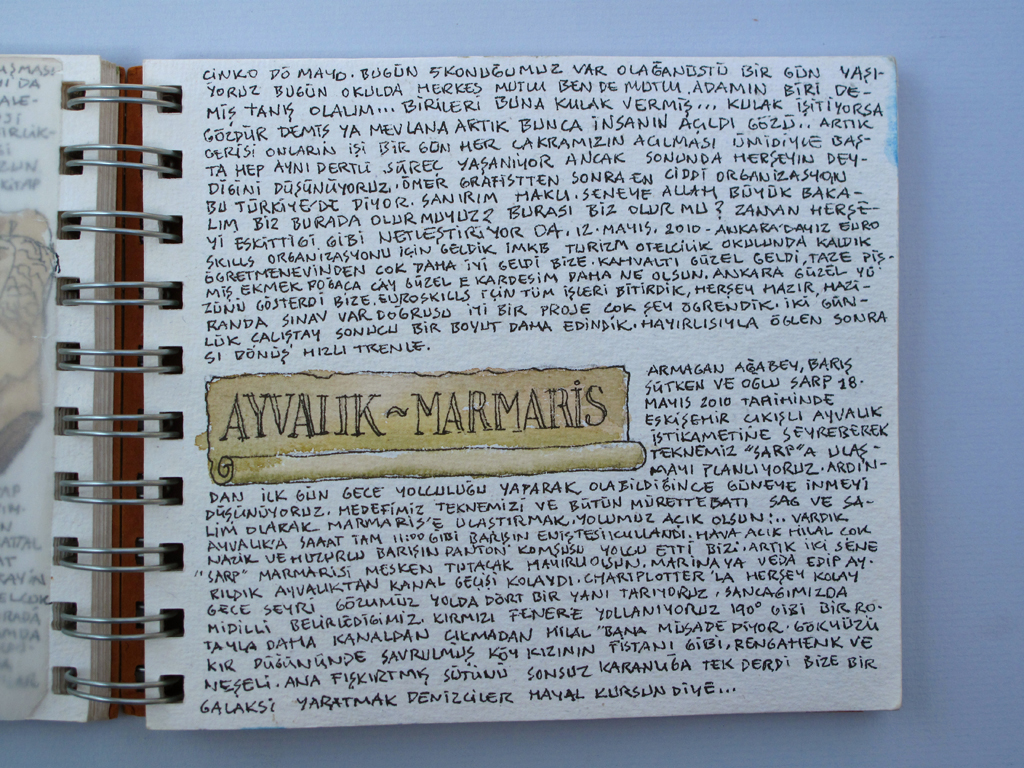 CİNKO DÖ MAYO. BUGÜN 5 KONUĞUMUZ VAR OLAĞANÜSTÜ BİR GÜN YAŞI-
YORUZ BUGÜN OKULDA HERKES MUTLU BEN DE MUTLU. ADAMIN BİRİ DE-
MİŞ TANIŞ OLALIM... BİRİLERİ BUNA KULAK VERMİŞ... KULAK İŞİTİYORSA
GÖZDÜR DEMİŞ YA MEVLANA ARTIK BUNCA İNSANIN AÇILDI GÖZÜ... ARTIK
GERİSİ ONLARIN İŞİ BİR GÜN HER ÇAKRAMIZIN AÇILMASI ÜMİDİYLE BAŞ-
TA HEP AYNI DERTLİ SÜREÇ YAŞANIYOR ANCAK SONUNDA HERŞEYİN DEY-
DİĞİNİ DÜŞÜNÜYORUZ. ÖMER GRAFİSTTEN SONRA EN CİDDİ ORGANİZASYON
BU TÜRKİYE'DE DİYOR. SANIRIM HAKLI. SENEYE ALLAH BÜYÜK BAKA-
LIM BİZ BURADA OLUR MUYUZ? BURASI BİZ OLUR MU? ZAMAN HERŞE-
Yİ ESKİTTİĞİ GİBİ NETLEŞTİRİYOR DA. 12. MAYIS. 2010 - ANKARA'DAYIZ EURO
SKILLS ORGANİZASYONU İÇİN GELDİK İMKB TURİZM OTELCİLİK OKULUNDA KALDIK
ÖĞRETMENEVİNDEN ÇOK DAHA İYİ GELDİ BİZE. KAHVALTI GÜZEL GELDİ. TAZE PİŞ-
MİŞ EKMEK POĞAÇA ÇAY GÜZEL E KARDEŞİM DAHA NE OLSUN. ANKARA GÜZEL YÜ-
ZÜNÜ GÖSTERDİ BİZE. EUROSKILLS İÇİN TÜM İŞLERİ BİTİRDİK, HERŞEY HAZIR, HAZİ-
RANDA SINAV VAR DOĞRUSU İYİ BİR PROJE ÇOK ŞEY ÖĞRENDİK. İKİ GÜN-
LÜK ÇALIŞTAY SONUCU BİR BOYUT DAHA EDİNDİK. HAYIRLISIYLA ÖĞLEN SONRA
SI DÖNÜŞ HIZLI TRENLE.
AYVALIK ~ MARMARİS
ARMAGAN AĞABEY, BARIŞ
SÜTKEN VE OĞLU SARP 18.
MAYIS 2010 TARİHİNDE
ESKİŞEHİR ÇIKIŞLI AYVALIK
İSTİKAMETİNE SEYREDEREK
TEKNEMİZ "SARP"A ULAŞ-
MAYI PLANLIYORUZ. ARDIN-
DAN İLK GÜN GECE YOLCULUĞU YAPARAK OLABİLDİĞİNCE GÜNEYE İNMEYİ
DÜŞÜNÜYORUZ. HEDEFİMİZ TEKNEMİZİ VE BÜTÜN MÜRETTEBATI SAĞ VE SA-
LİM OLARAK MARMARİS'E ULAŞTIRMAK. YOLUMUZ AÇIK OLSUN!.. VARDIK
AYVALIK'A SAAT TAM 11:00 GİBİ BARIŞIN ENİŞTESİ KULLANDI. HAVA AÇIK HİLAL ÇOK
NAZİK VE HUZURLU BARIŞIN PANTON KOMŞUSU YOLCU ETTİ BİZİ. ARTIK İKİ SENE
"SARP" MARMARİSİ MESKEN TUTACAK HAYIRLI OLSUN. MARİNAYA VEDA EDİP AY-
RILDIK AYVALIKTAN KANAL GEÇİŞİ KOLAYDI. CHARIPLOTTER'LA HERŞEY KOLAY
GECE SEYRİ GÖZÜMÜZ YOLDA DÖRT BİR YANI TARIYORUZ. SANCAĞIMIZDA
MİDİLLİ BELİRLEDİĞİMİZ KIRMIZI FENERE YOLLANIYORUZ 190° GİBİ BİR RO-
TAYLA DAHA KANALDAN ÇIKMADAN HİLAL "BANA MÜSADE DİYOR. GÖKYÜZÜ
KIR DÜĞÜNÜNDE SAVRULMUŞ KÖY KIZININ FİSTANI GİBİ, RENGAHENK VE
NEŞELİ. ANA FIŞKIRTMIŞ SÜTÜNÜ SONSUZ KARANLIĞA TEK DERDİ BİZE BİR
GALAKSİ YARATMAK DENİZCİLER HAYAL KURSUN DİYE...